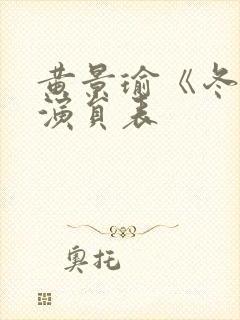 黄景瑜《冬
演员表
奥托